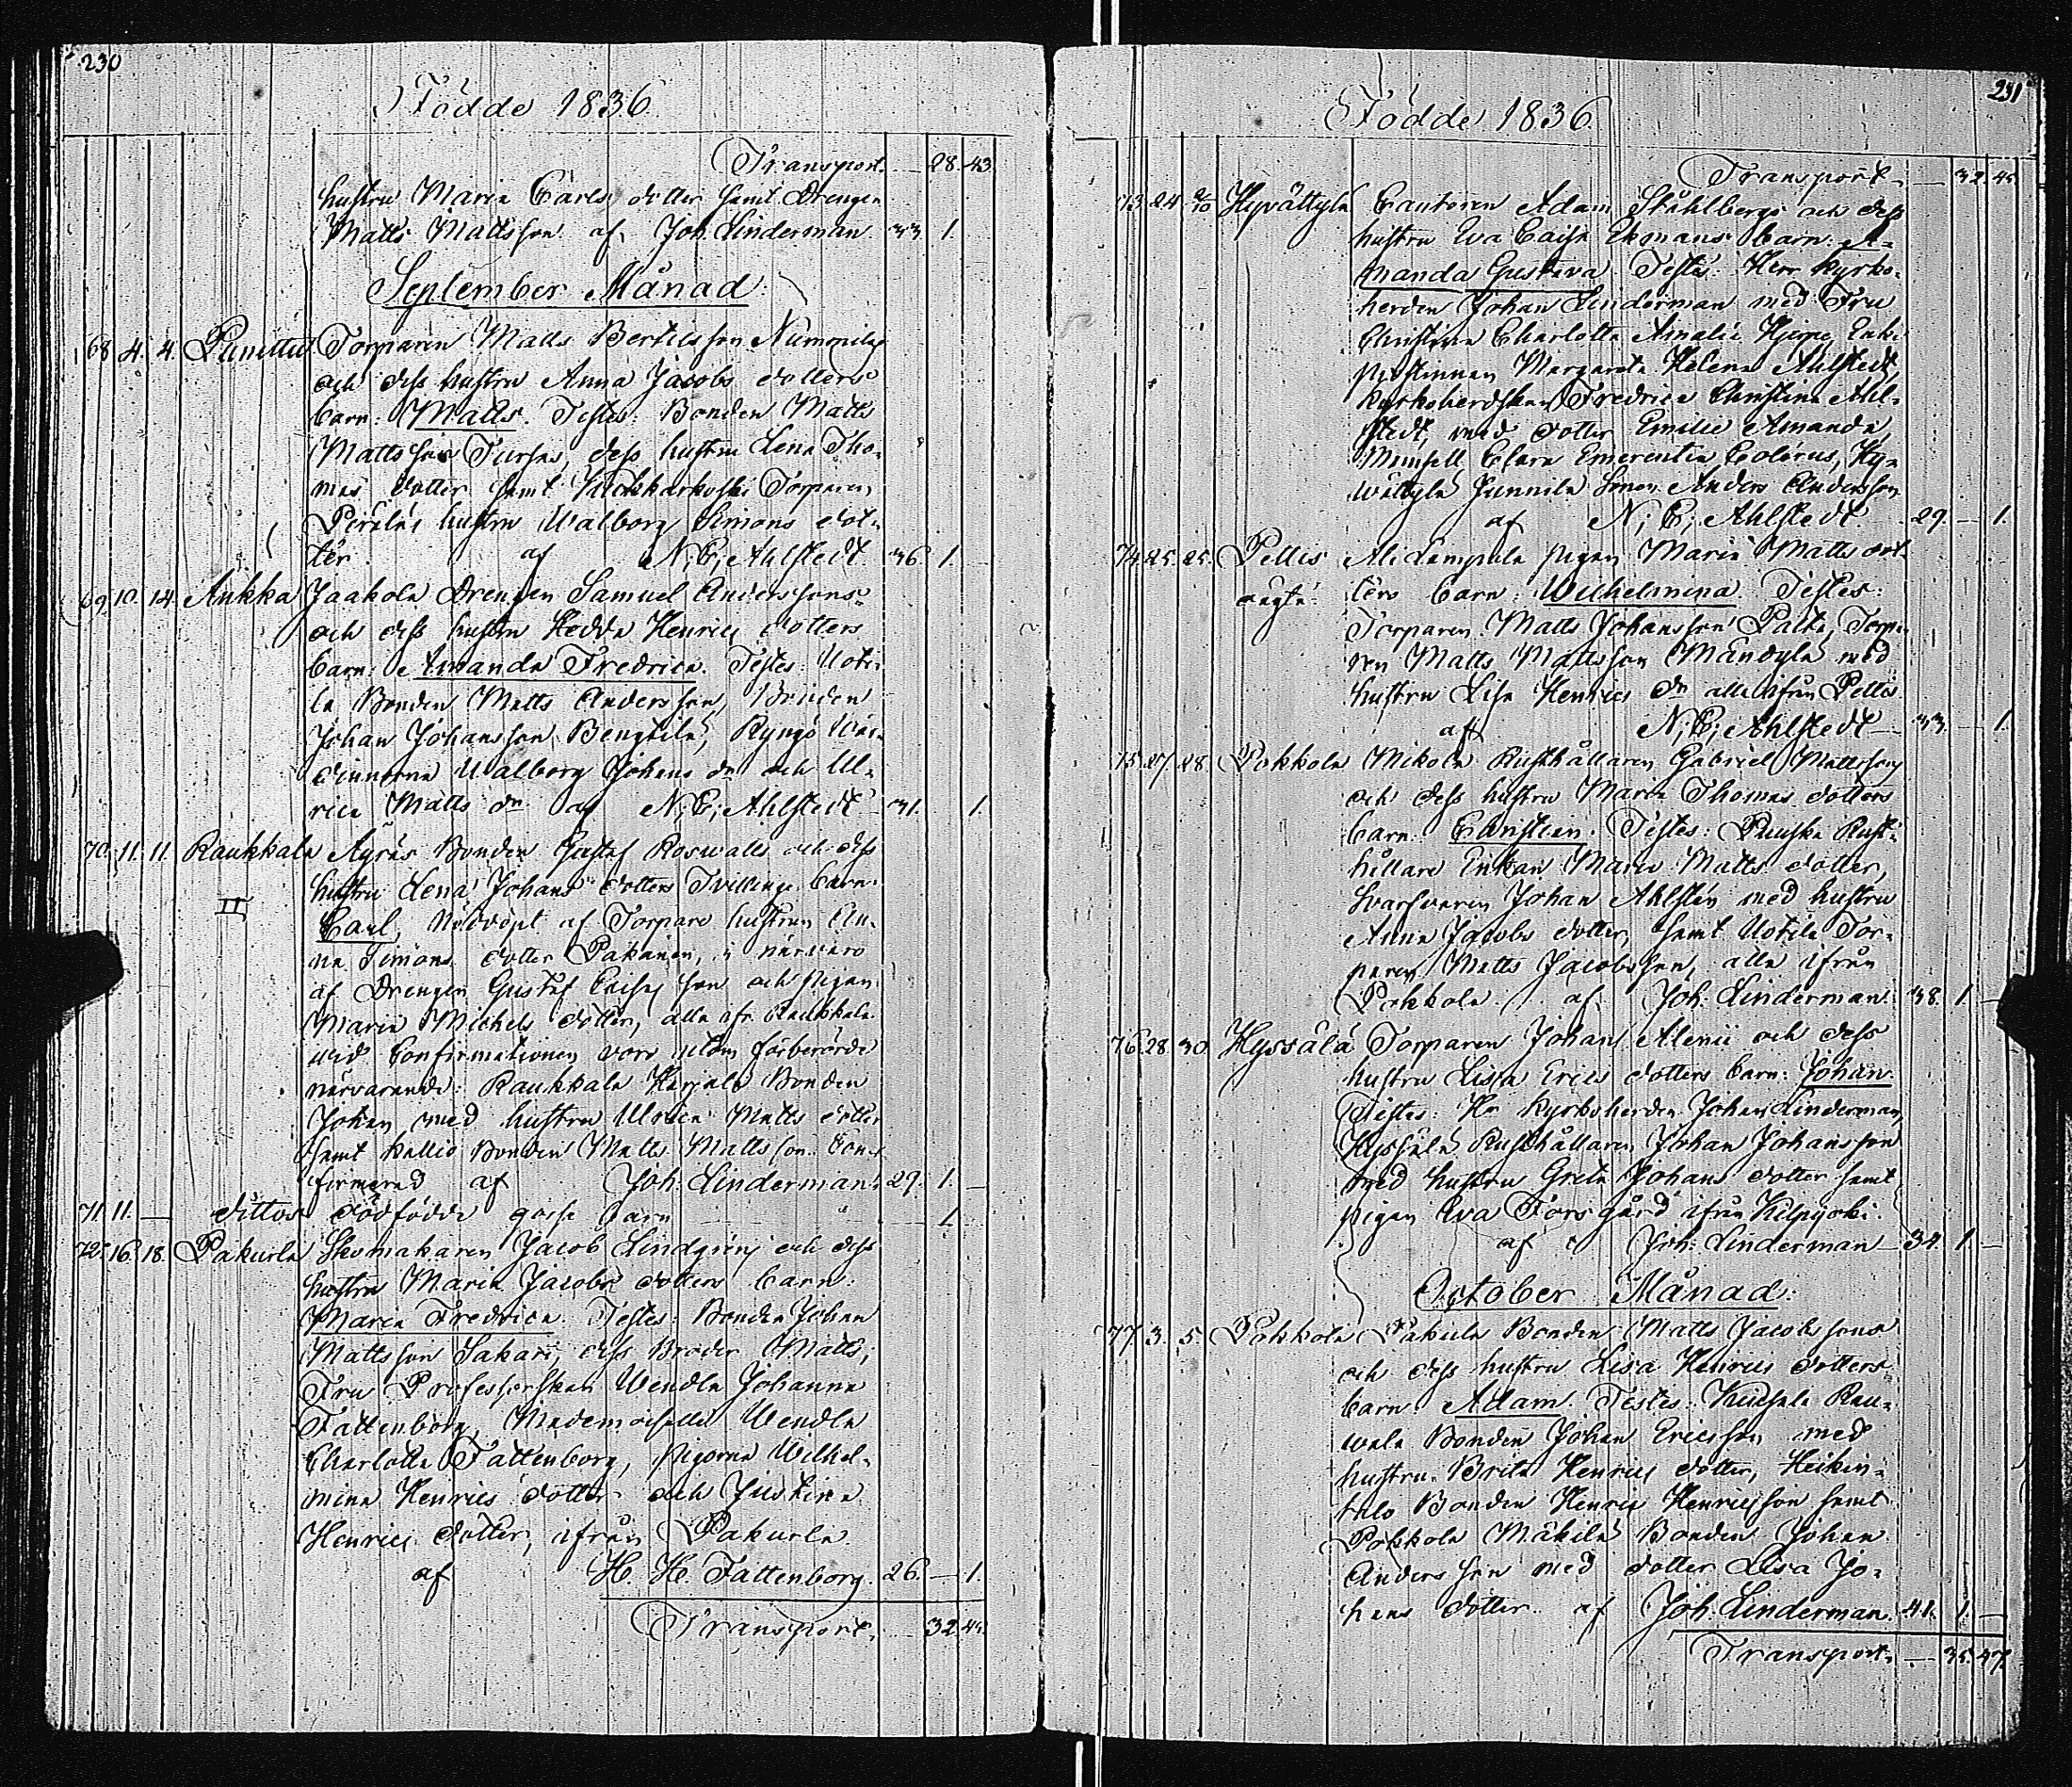 230
Födde 1836.
Transport. — 28. 43.
hustru Maria Carls dotter samt Drengen
Matts Mattsson af Joh. Linderman 33. 1.
September Månad.
68. 4. 4. Torparen Matts Bertilsson
och dess hustru Anna Jacobs dotters
barn: Matts. Testes: Bonden Matts
Mattsson dess hustru Lena Tho-
mas dotter samt Torparen
hustru Walborg Simons dot-
ter. af N; E; Ahlstedt. 36. 1.
69. 10. 14. Ankka Jaakola Drengen Samuel Anderssons
och dess hustru Hedda Henrics dotters
barn: Amanda Fredrica. Testes: Uoti-
la Bonden Matts Andersson, Bonden
Johan Johansson Bengtilä,
Walborg Johans dr och Ul-
rica Matts dr af N; E; Ahlstedt 31. 1.
70. 11. 11. Raukkala Äyräs Bonden Gustaf Roswalls och dess
hustru Lena Johans dotters Tvillinge barn:
II
Carl, Nöddöpt af Torpare hustrun An-
na Simons dotter Pakainen, i närvaro
af Drengen Gustaf son och pigan
Maria Michels dotter, alla ifr. Raukkala
vid Confirmationen voro utom förberörde
närvarande: Raukkala Bonden
Johan med hustru Ulrica Matts dotter
samt Kallio Bonden Matts Mattsson. Con-
firmerad af Joh: Linderman. 29. 1. —
71. 11. — dittos dödfödde gosse barn — 1.
72. 16. 18. Pakurla Skomakaren Jacob Lindgrens och dess
hustru Maria Jacobs dotters barn:
Maria Fredrica. Testes: Bonden Johan
Mattsson Sakari, dess Broder Matts;
Fru Professorskan Wendla Johanna
Fattenborg, Mademoiselle Wendla
Charlotta Fattenborg, pigorna Wilhel-
mina Henrics dotter och Justina
Henrics dotter, ifrån Pakurla.
af H. H. Fattenborg. 26. — 1.
Transport. — 32. 45.
231
Födde 1836.
Transport. — 32. 45.
73. 24. 2/10 Hyvättylä Cantoren Adam Ståhlbergs och dess
hustru Eva Caisa Ekmans barn: A-
manda Gustava. Testes: Herr Kyrko-
herden Johan Linderman med Fru
Christina Charlotta Amalia Enke
prostinnan Margareta Helena Ahlstedt,
Kyrkoherdskan Fredrica Christina Ahl-
stedt, med dotter Emilie Amanda,
Mamsell Clara Emerentia Hy-
wättylä Junnila Sonen Anders Andersson
af N; E; Ahlstedt. 29. — 1.
74. 25. 25. Pellis Alilampula pigan Maria Matts dot-
oägta. ters barn: Wilhelmina. Testes:
Torparen Matts Johansson Torpa-
ren Matts Mattsson Mändylä med
hustru Lisa Henrics dr alla ifrån Pellis
af N; E; Ahlstedt — 33. — 1.
75. 27. 28. Pokkola Mikola Rusthållaren Gabriel Mattsson
och dess hustru Maria Thomas dotters
barn: Christian. Testes: Puuska Rust-
hållare Enkan Maria Matts dotter,
Svarfvaren Johan Ahlstén med hustru
Anna Jacobs dotter, samt Uotila Tor-
paren Matts Jacobsson, alla ifrån
Pokkola. af Joh. Linderman. 38. 1. —
76. 28. 30. Hyssälä Torparen Johan Alenii och dess
hustru Lisa Erics dotters barn: Johan.
Testes: Hr Kyrkoherden Johan Linderman,
Hyssälä Rusthållaren Johan Johansson
med hustru Greta Johans dotter samt
pigan Eva Forsgård ifrån Kilpijoki.
af Joh: Linderman — 34. 1. —
October Månad.
77. 3. 5. Pokkola Bonden Matts Jacobssons
och dess hustru Lisa Henrics dotters
barn: Adam. Testes: Rau-
wala Bonden Johan Ericsson med
hustru Brita Henrics dotter, Heikin-
talo Bonden Henric Henricsson samt
Pokkola Mäkilä Bonden Johan
Andersson med dotter Lisa Jo-
hans dotter. af Joh. Linderman. 41. 1. —
Transport. — 35. 47.